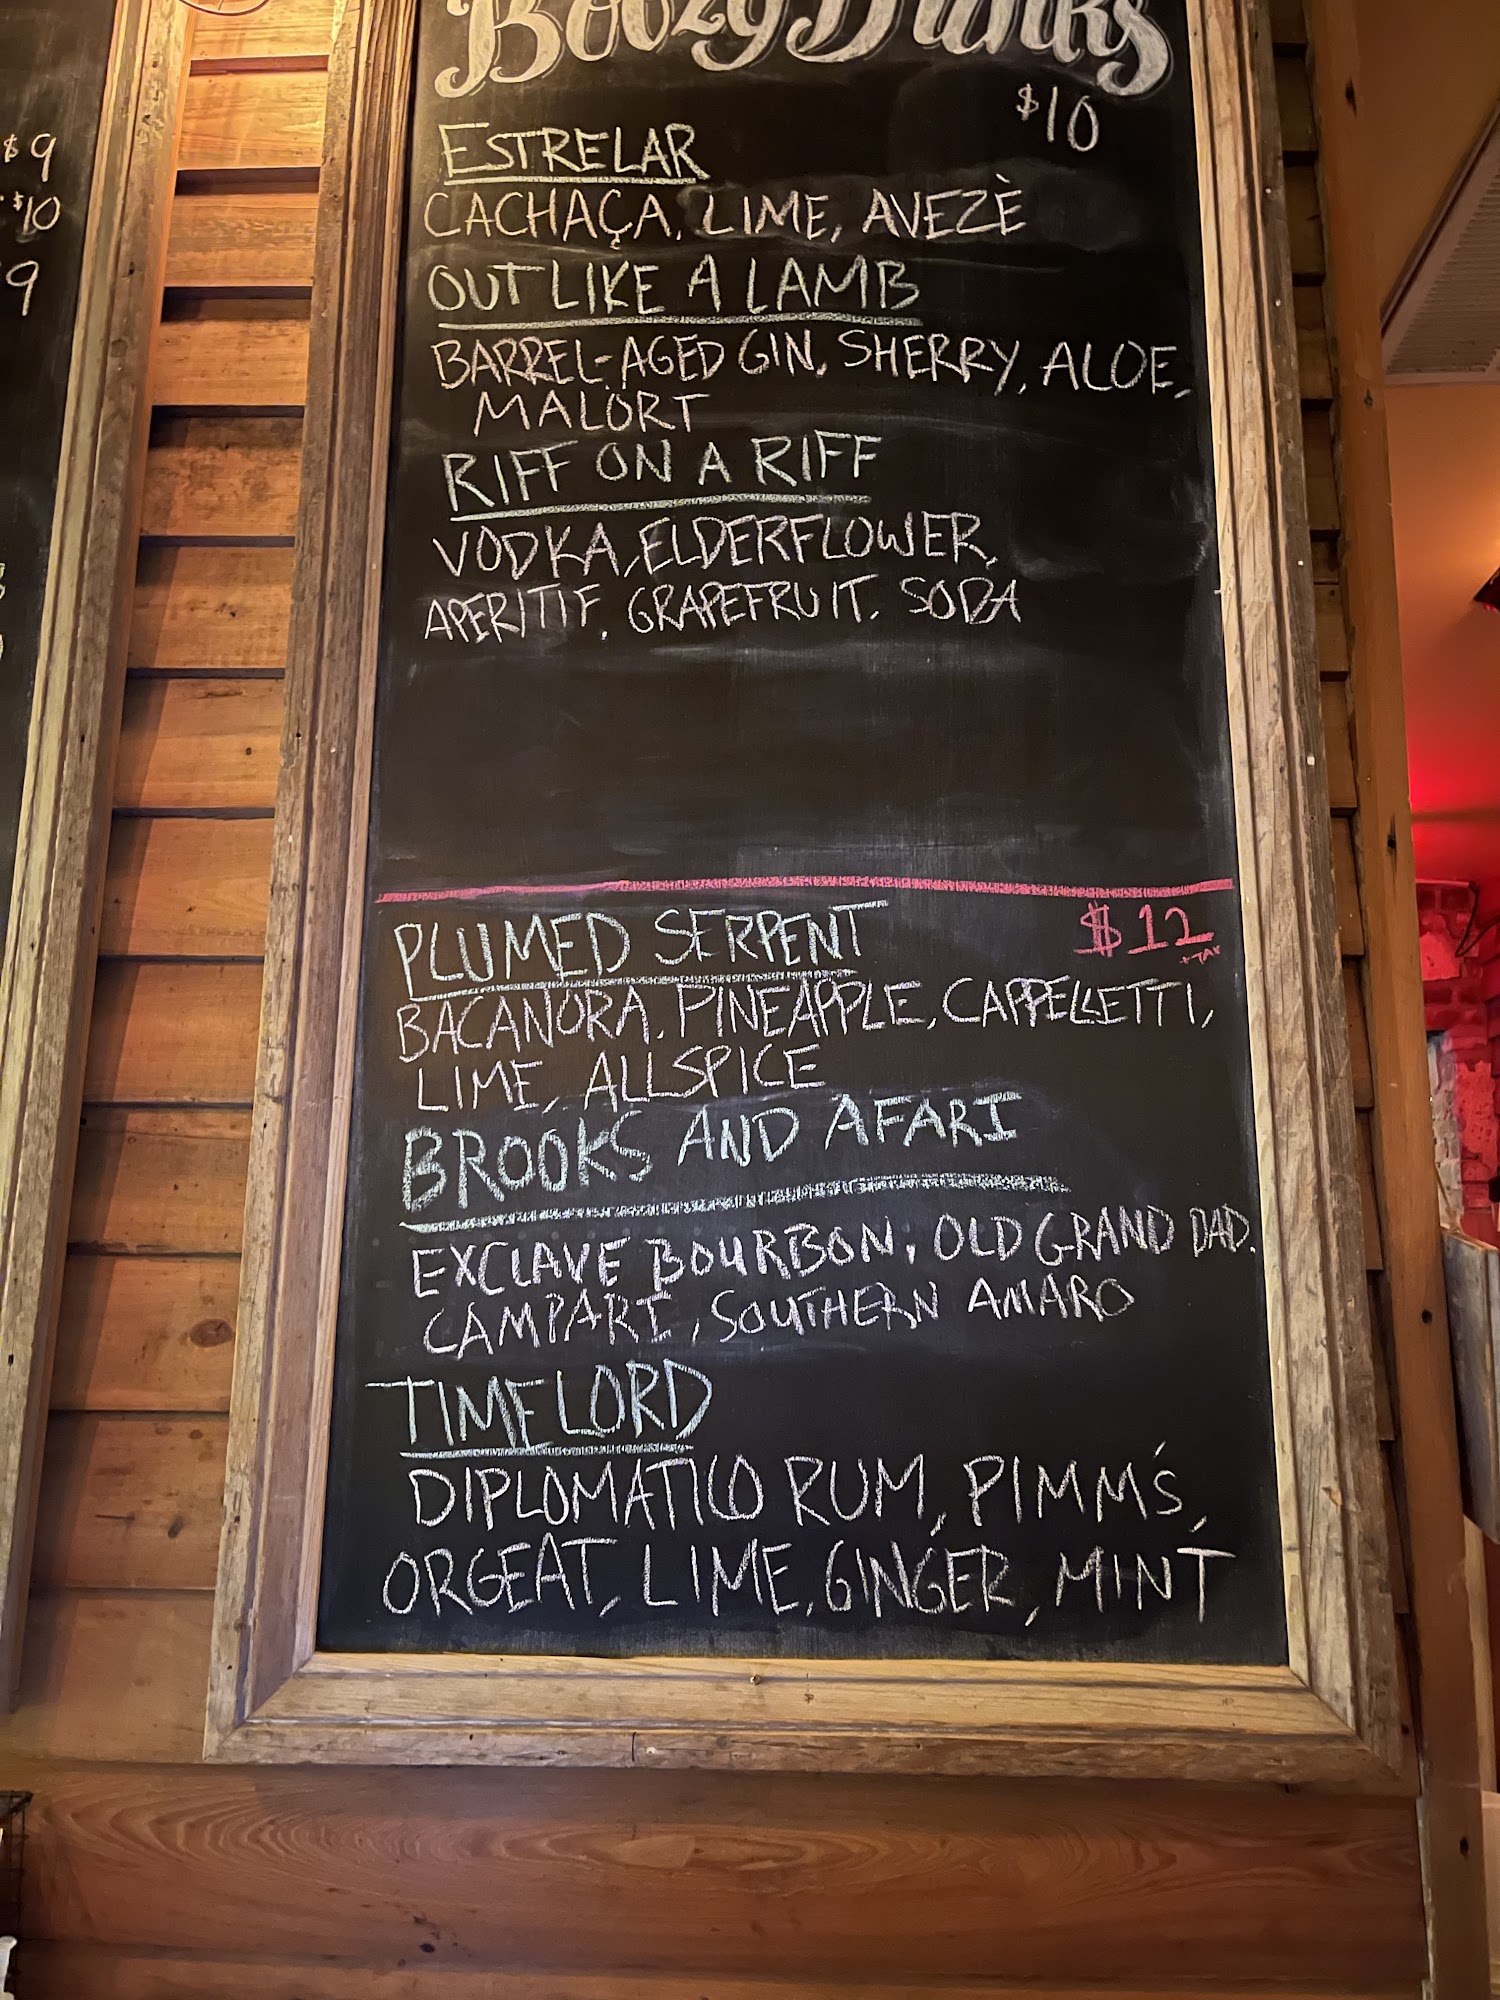 $9
$10
9
Boozy Drinks
$10
ESTRELAR
CACHAÇA, LIME, AVEZÈ
OUT LIKE A LAMB
BARREL-AGED GIN, SHERRY, ALOE,
MALORT
RIFF ON A RIFF
VODKA, ELDERFLOWER,
APERITIF, GRAPEFRUIT, SODA
PLUMED SERPENT
$12
+TAX
BACANORA, PINEAPPLE, CAPPELLETTI,
LIME, ALLSPICE
BROOKS AND AFARI
EXCLAVE BOURBON, OLD GRAND DAD.
CAMPARI, SOUTHERN AMARO
TIMELORD
DIPLOMATICO RUM, PIMM'S,
ORGEAT, LIME, GINGER, MINT